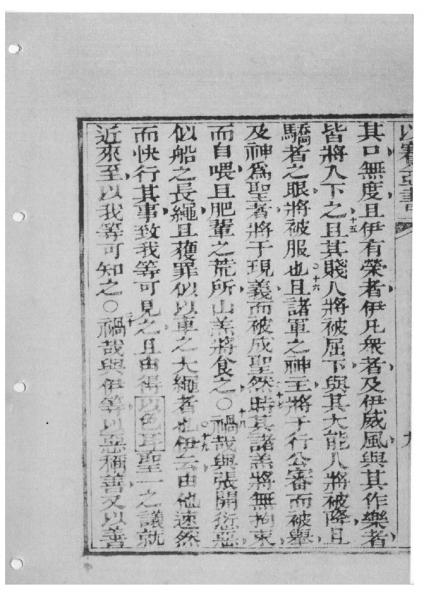 以賽亞書 九
其口無度且伊有榮者伊凡衆者及伊威風與其作樂者
皆將入下之十五且其賤人將被屈下與其大能人將被降且
驕者之眼將被服也○十六且諸軍之神主將于行公審而被舉
及神爲聖者將于現義而被成聖十七然時其諸羔將無拘束
而自喂且肥輩之荒所山羔將食之○十八禍哉與張開愆惡
似船之長繩且獲罪似以車之大繩者也十九伊云由他速然
而快行其事致我等可見之且由得以色耳聖一之議就
近來至以我等可知之○二十禍哉與伊等以惡稱善又以善